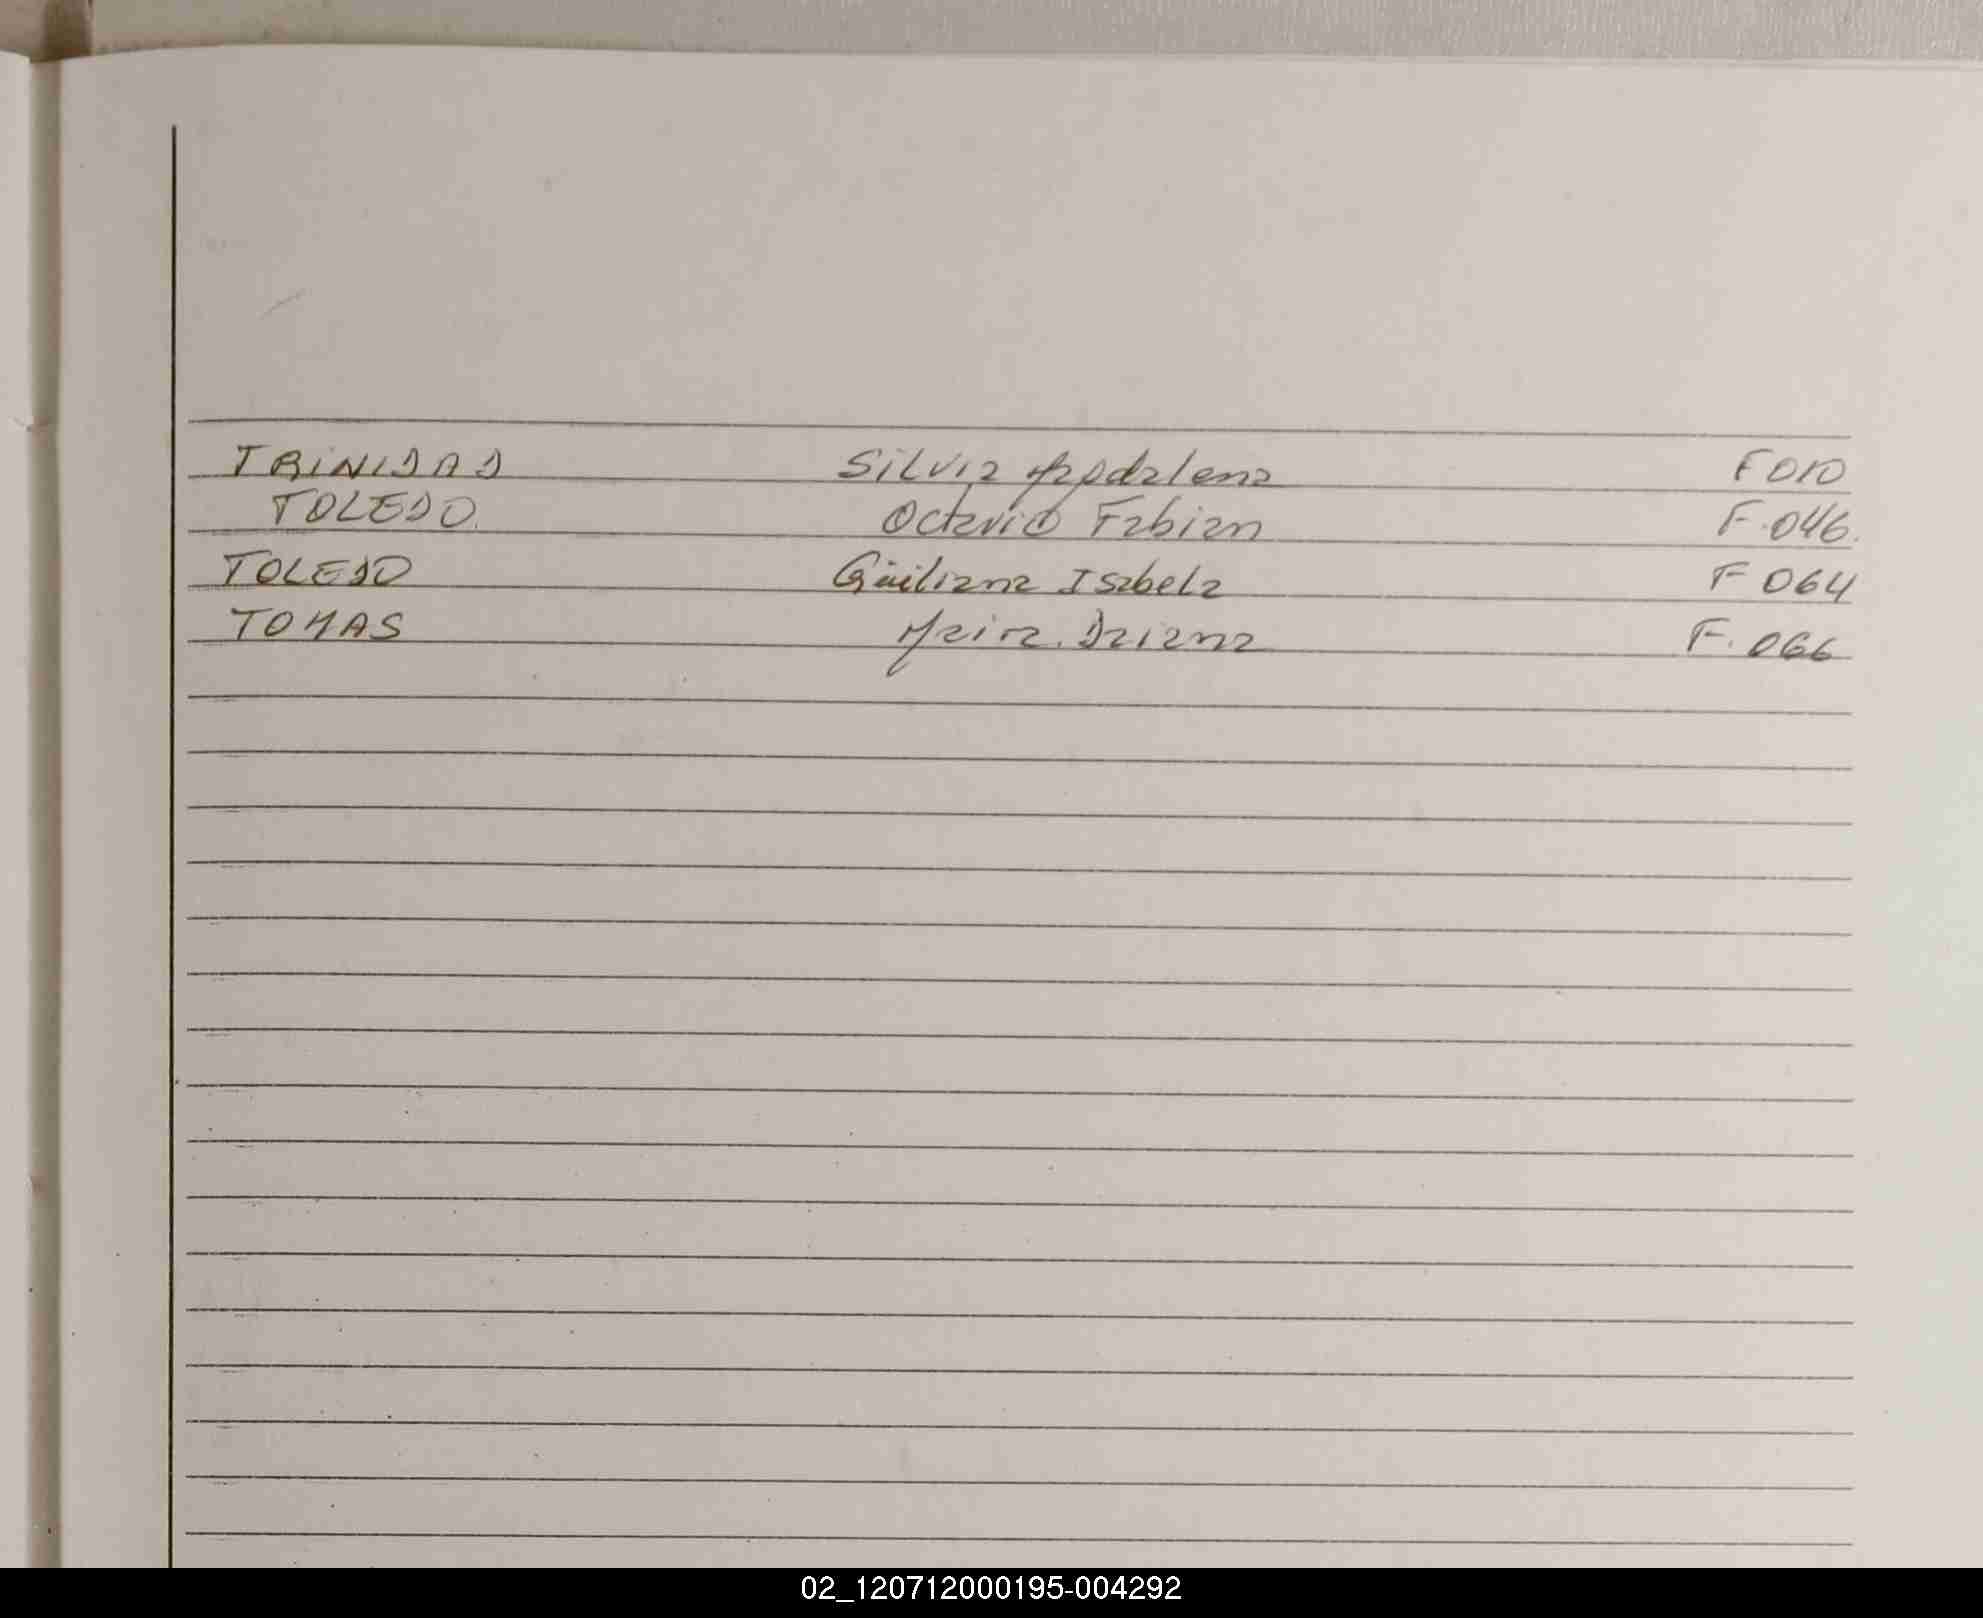 TRINIDAD Silvia Magdalena F 010
TOLEDO. Octavio Fabian F. 046.
TOLEDO Güiliana Isabela F 064
TOMAS Maira. Daiana F. 066
02_120712000195-004292